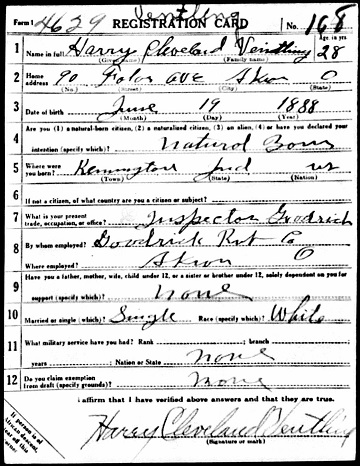 Form 1 4629 REGISTRATION CARD No. 168
1 Name in full Harry Cleveland Ventling Age in yrs 28
(Given name) (Family name)
2 Home address 90 Ave Akron O
(No.) (Street) (City) (State)
3 Date of birth June 19 1888
(Month) (Day) (Year)
4 Are you (1) a natural-born citizen, (2) a naturalized citizen, (3) an alien, (4) or have you declared your
intention (specify which)? Natural Born
5 Where were you born? Ind US
(Town) (State) (Nation)
6 If not a citizen, of what country are you a citizen or subject?
7 What is your present trade, occupation, or office? Inspector Goodrich
8 By whom employed? Goodrick Rub Co
Where employed? Akron O
9 Have you a father, mother, wife, child under 12, or a sister or brother under 12, solely dependent on you for
support (specify which)? none
10 Married or single (which)? Single Race (specify which)? White
11 What military service have you had? Rank ; branch
years ; Nation or State none
12 Do you claim exemption from draft (specify grounds)? none
I affirm that I have verified above answers and that they are true.
Harry Cleveland Ventling
(Signature or mark)
If person is of
African descent,
tear off this
corner